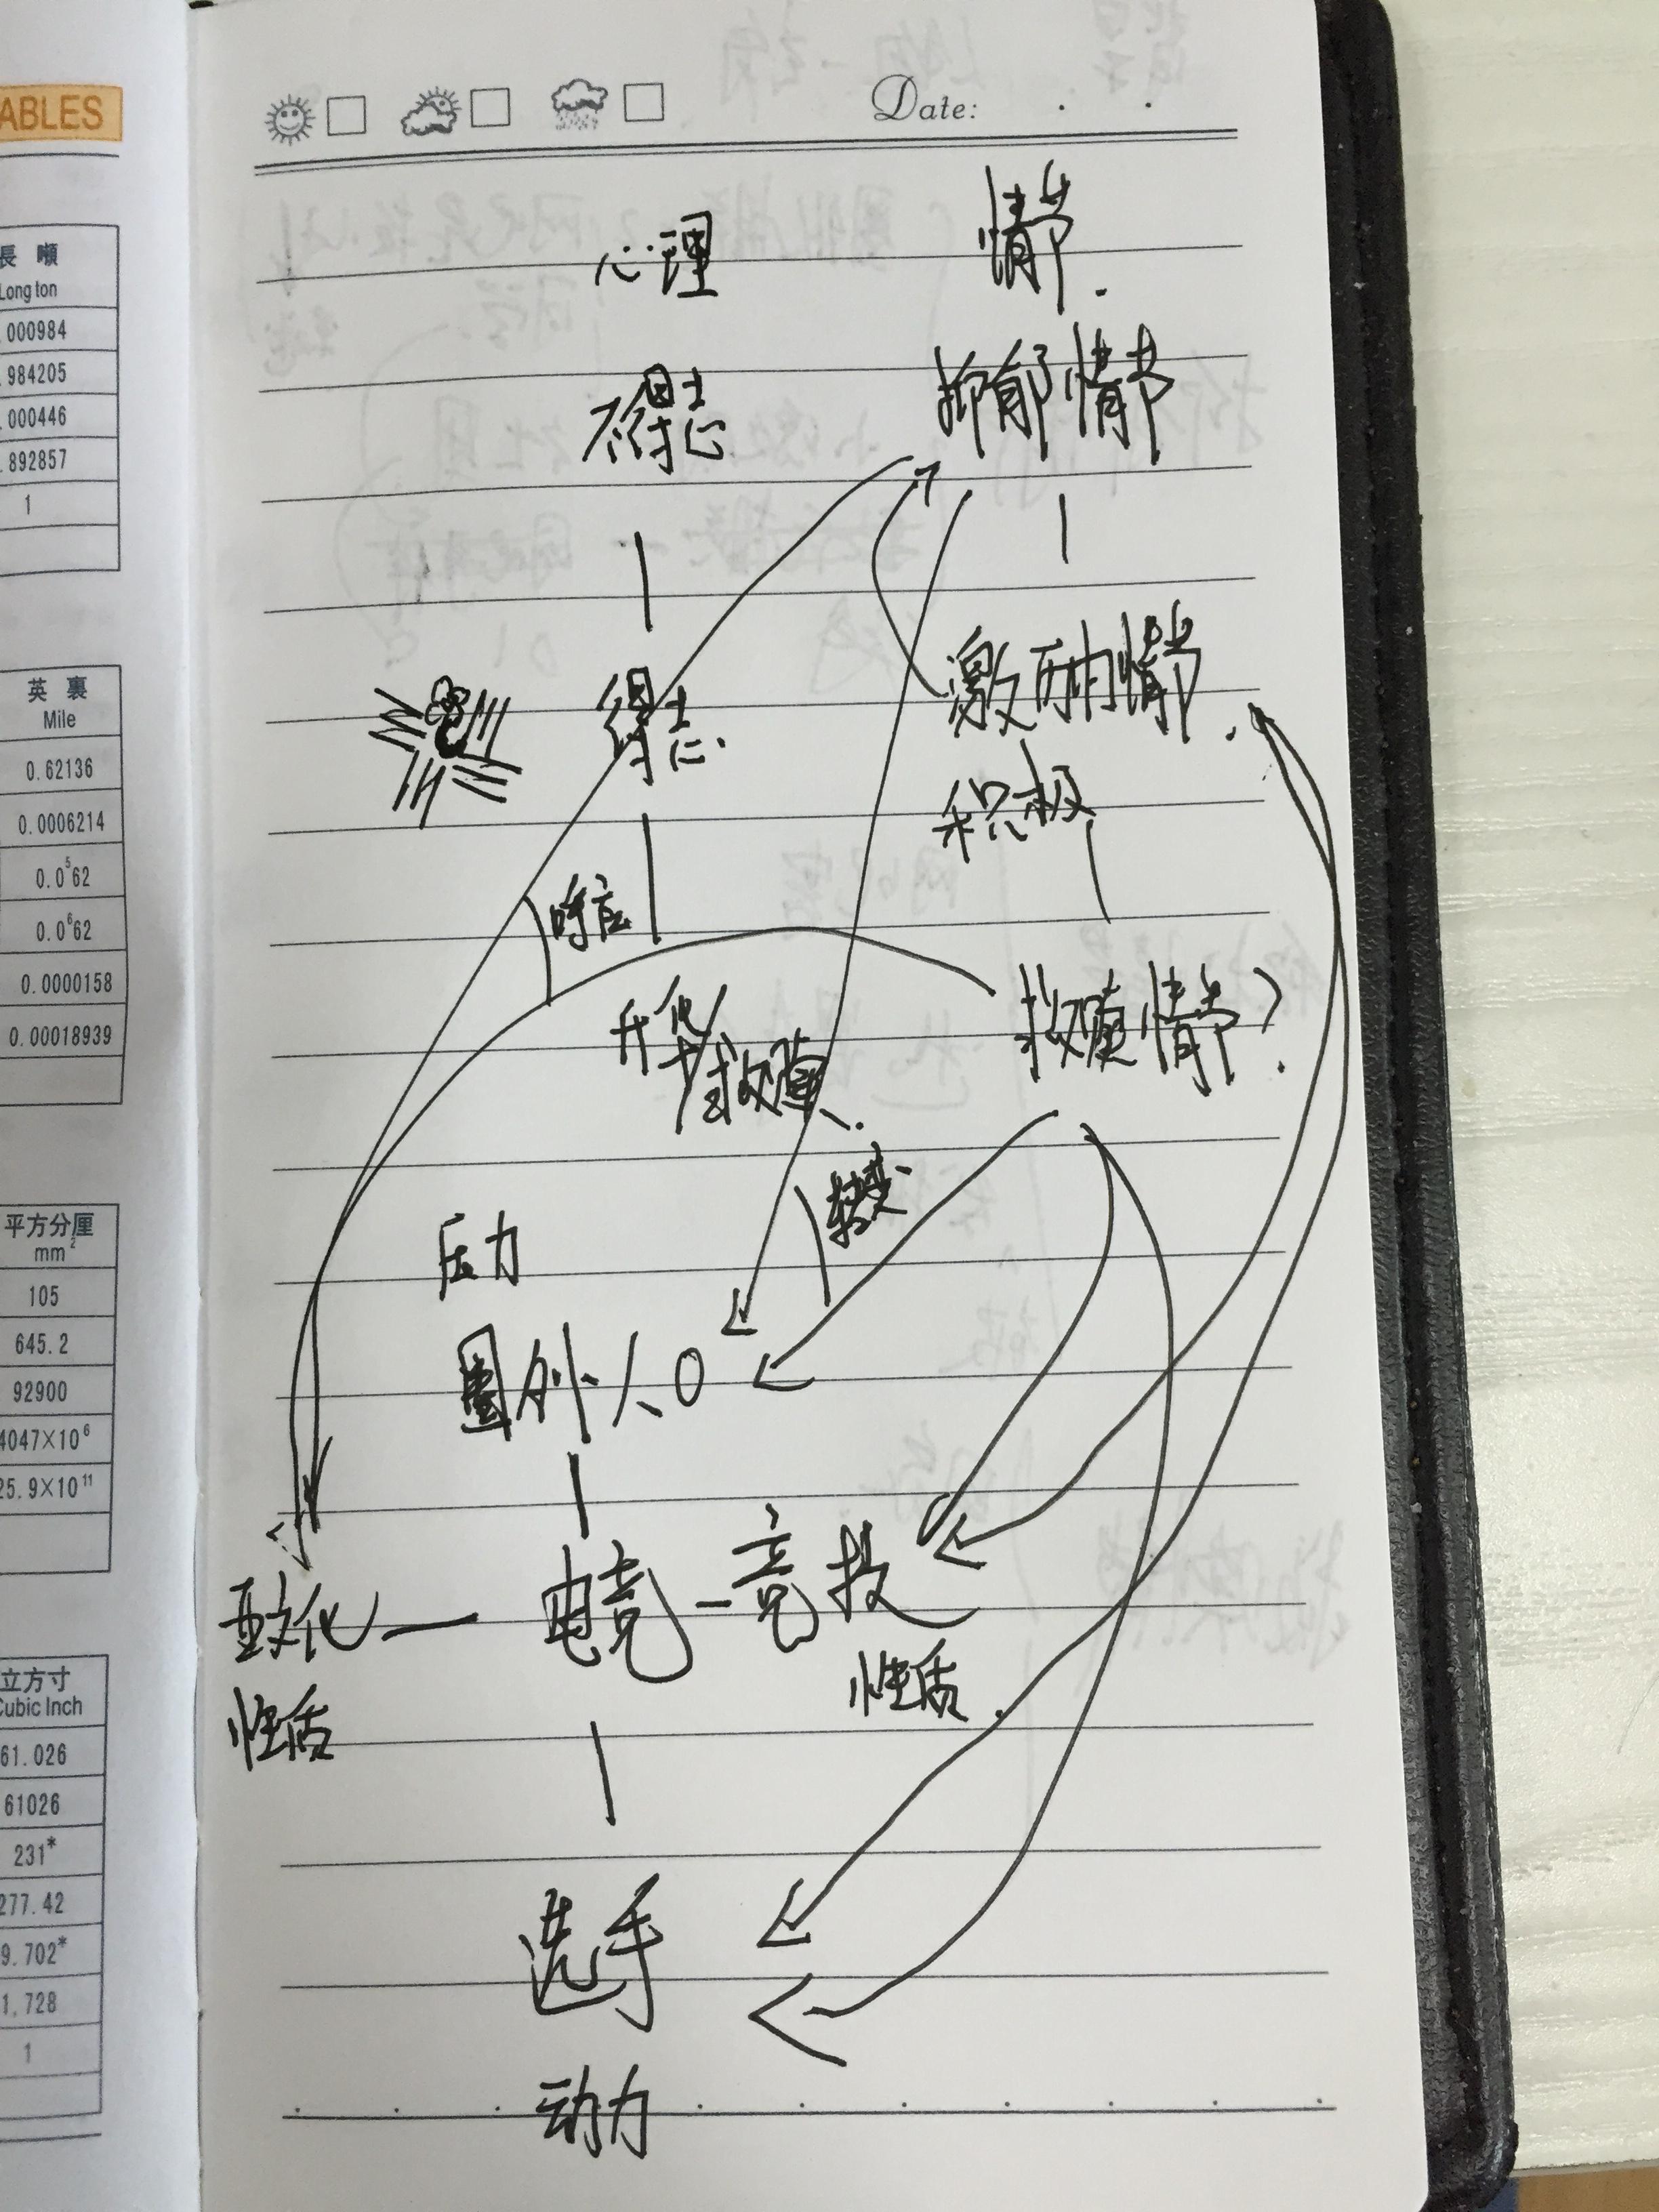 ABLES
Date:
長 噸
Long ton
.000984
.984205
.000446
.892857
1
英 裏
Mile
0.62136
0.0006214
0.0⁵62
0.0⁶62
0.0000158
0.00018939
平方分厘
mm²
105
645.2
92900
4047×10⁶
25.9×10¹¹
立方寸
Cubic Inch
61.026
61026
231*
277.42
9.702*
1,728
1
心理 情节.
不得志 抑郁情节
得志. 激励情节.
积极
呼应
升华 救赎情节?
或救赎.
转变
压力
圈外人O
亚文化 — 电竞 - 竞技
性质 性质.
选手
动力